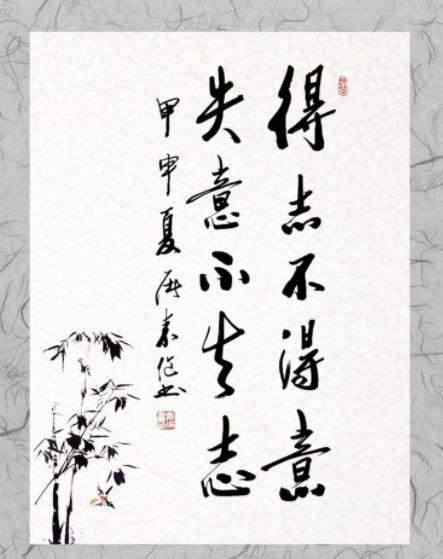 得志不得意
失意不失志
甲申夏